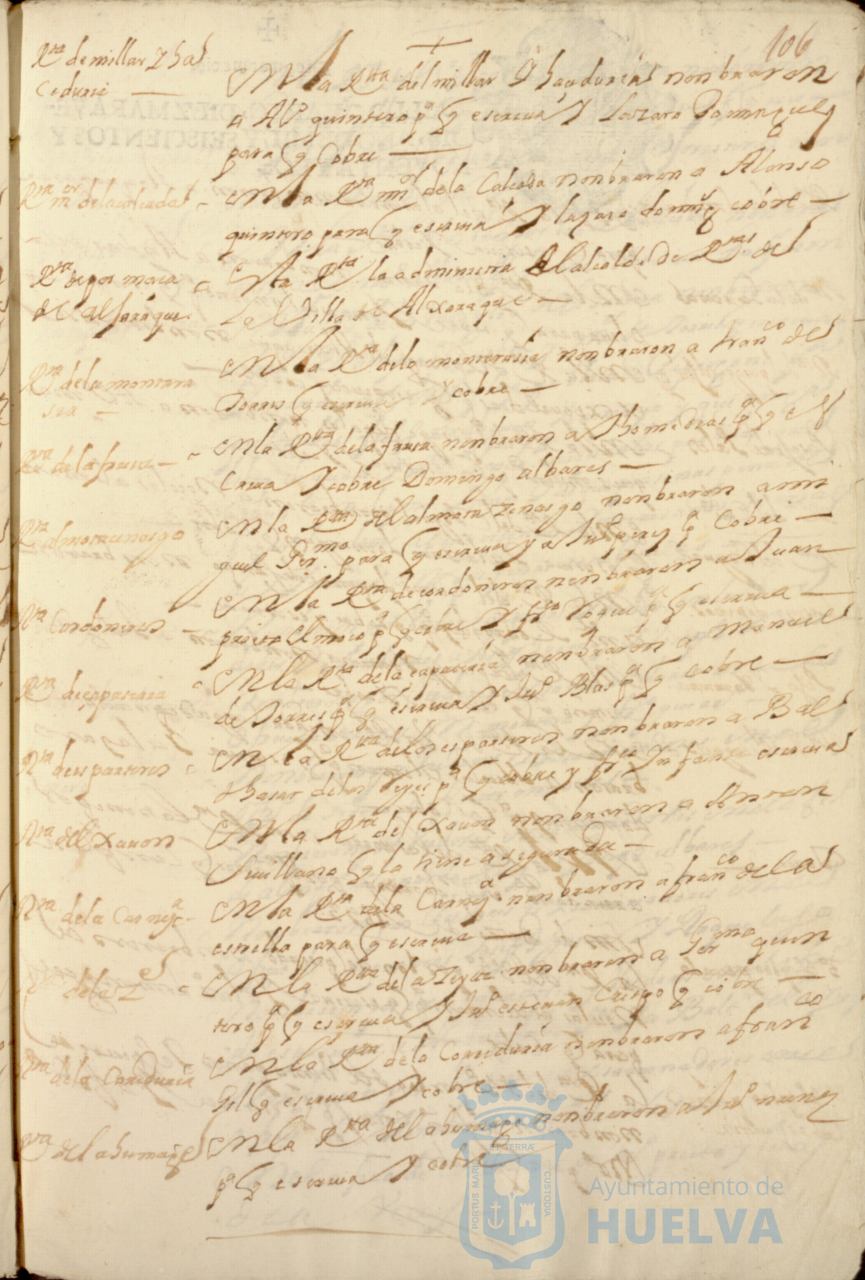 106
Rta de millar y has
ceduria
En la Rta del millar y haseduria nonbraron
a Alo quintero pa q escriua y Lazaro Domingues
para q Cobre
Rta mor de la calcada
En la Rta mor de la Calcada nonbraron a Alonso
quintero para q escriua y lazaro domingz cobre
Rta de por
de el alfaraque
Esta Rta la administra el alcalde de Rtas de
la Villa de Alxaraque
Rta de la montara
sia
En la Rta de la montarasia nonbraron a franco de
Torres q escriua y cobre
Rta de la fruta
En la Rta de la fruta nonbraron a Thome dias pa q es
criua y cobre Domingo albares
Rta almotasenasgo
En la Rta del almotazenasgo nonbraron a mi
guel Germo para q escriua y a Juo perez pa q Cobre
Rta Cordoneros
En la Rta de cordoneros nonbraron a Juan
prieto el moco pa q cobre y pa q escriua
Rta de capateria
En la Rta de la capateria nonbraron a Manuel
de Torres pa q escriua y Juo Blas pa q cobre
Rta de esparteros
En la Rta de los esparteros nonbraron a Bal
thasar de los Reyes pa q cobre y Infante escriua
Rta del Xauon
En la Rta del Xauon nonbraron a Anton
Seuillano q la tiene asegurada
Rta de la Carneja
En la Rta de la Carneja nonbraron a franco de la
estrella para q escriua
Rta de la
En la Rta de la nonbraron a Germo quin
tero pa q escriua y Juo esteuan Crespo q cobre
Rta de la Coreduria
En la Rta de la Coreduria nonbraron a franco
Gil q escriua y cobre
Rta del ahumaje
En la Rta del ahumaje nonbraron a Juo nunez
pa q escriua y cobre
PORTUS MARIS ET TERRAE CUSTODIA
Ayuntamiento de
HUELVA